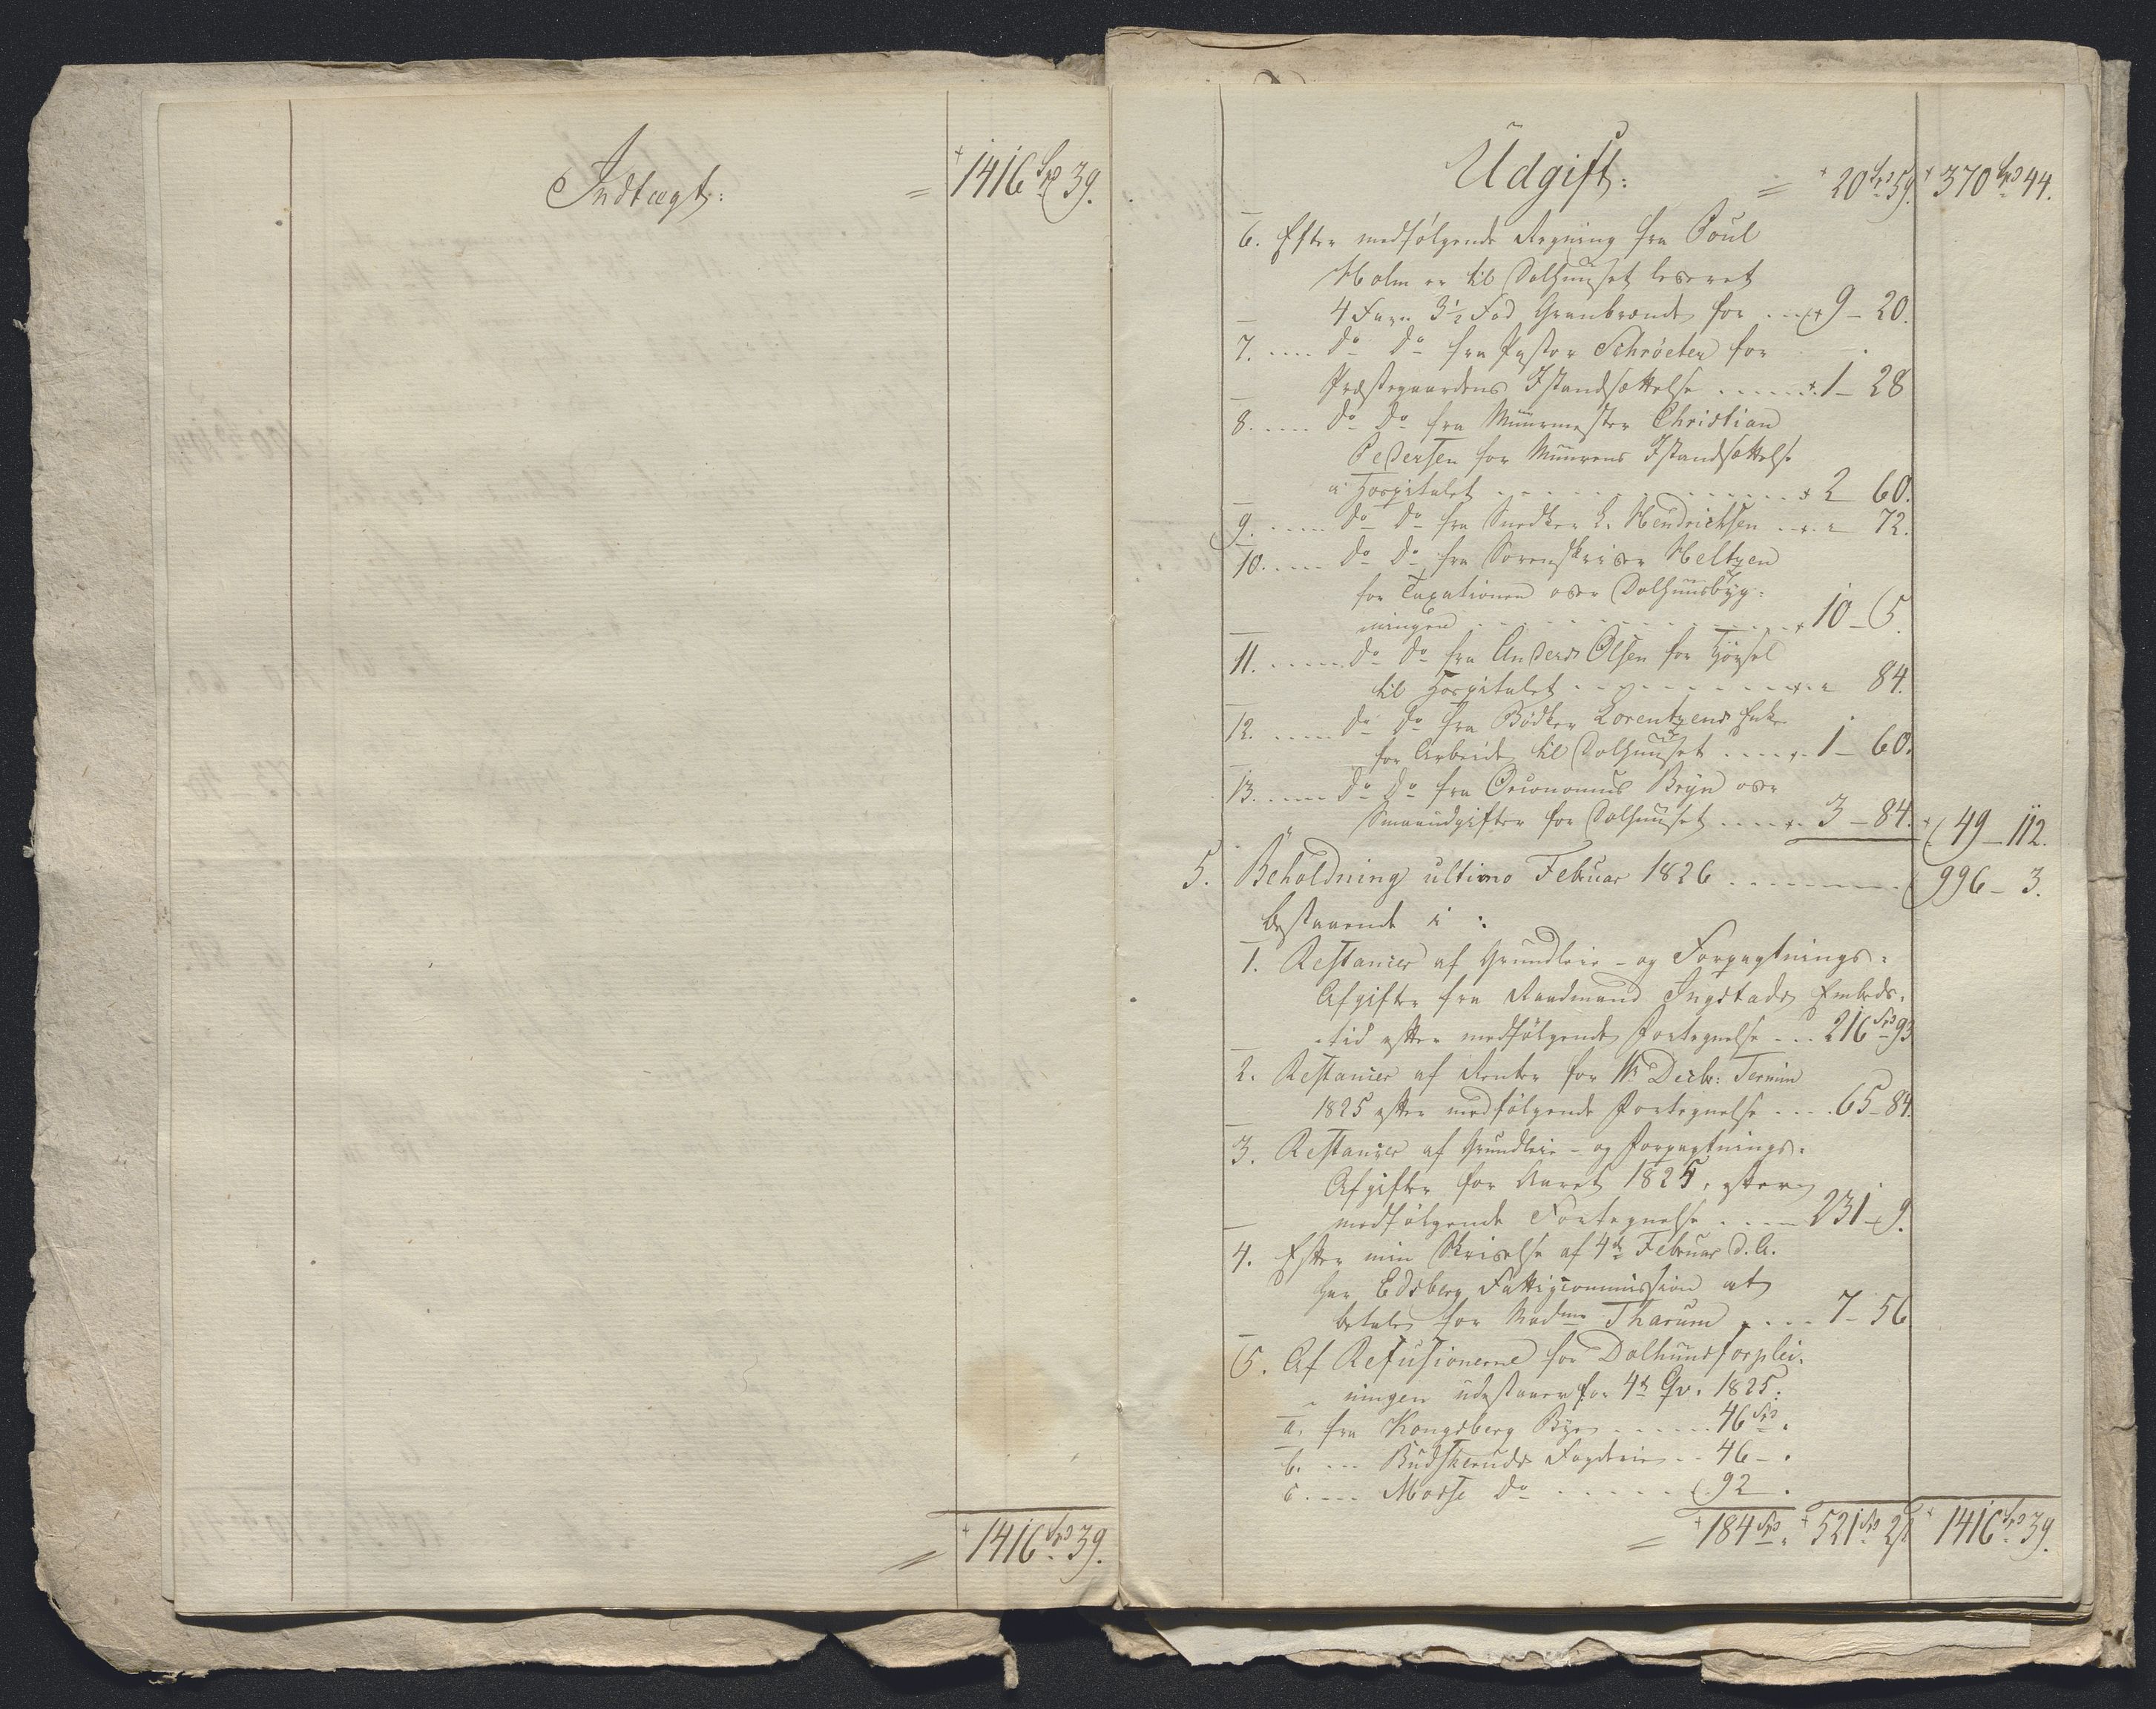 Indtægt:
= 1416 Spd 39.
1416 Spd 39.
Udgift:
= 20 Spd 59. 370 Spd 44.
6. Efter medfølgende Regning fra Poul
Holm er til Dolhuuset leveret
4 Favn 3½ Fod Granbrænde for 9 - 20.
7. do do fra Pastor Schrøeter for
Præstegaardens Istandsættelse 1 - 28
8. do do fra Muurmester Christian
Pedersen for Muurens Istandsættelse
i Hospitalet 2 60.
9. do do fra Snedker L. Hendrichsen " 72.
10. do do fra Sorenskriver Heltzen
for Taxationen over Dolhuusbyg=
ningen 10 - 5.
11. do do fra Anders Olsen for Kjørsel
til Hospitalet " 84.
12. do do fra Bødker Lorentzens Enke
for Arbeide til Dolhuuset 1 - 60.
13. do do fra Oeconomus Bryn over
Smaaudgifter for Dolhuuset 3 - 84. 49 - 112.
5. Beholdning ultimo Februar 1826 996 - 3.
bestaaende i:
1. Restancer af Grundleie- og Forpagtnings=
Afgifter fra Raadmand Ingstads Embeds=
tid efter medfølgende Fortegnelse 216 Spd 93
2. Restancer af Renter for 11te Decbr. Termin
1825 efter medfølgende Fortegnelse 65 - 84.
3. Restancer af Grundleie- og Forpagtnings=
Afgifter for Aaret 1825, efter
medfølgende Fortegnelse 231 - 9.
4. Efter min Skrivelse af 4de Februar d. A.
har Edsberg Fattigcommission at
betale for Madme Tharum 7 - 56
5. Af Refusionerne for Dolhuusforplei=
ningen udestaaer for 4de Qv. 1825:
a. fra Kongsberg Bye 46 Spd "
b. Budskeruds Fogderie 46 - "
c. Mosse do 92 "
= 184 Spd " 521 Spd 2 1416 Spd 39.